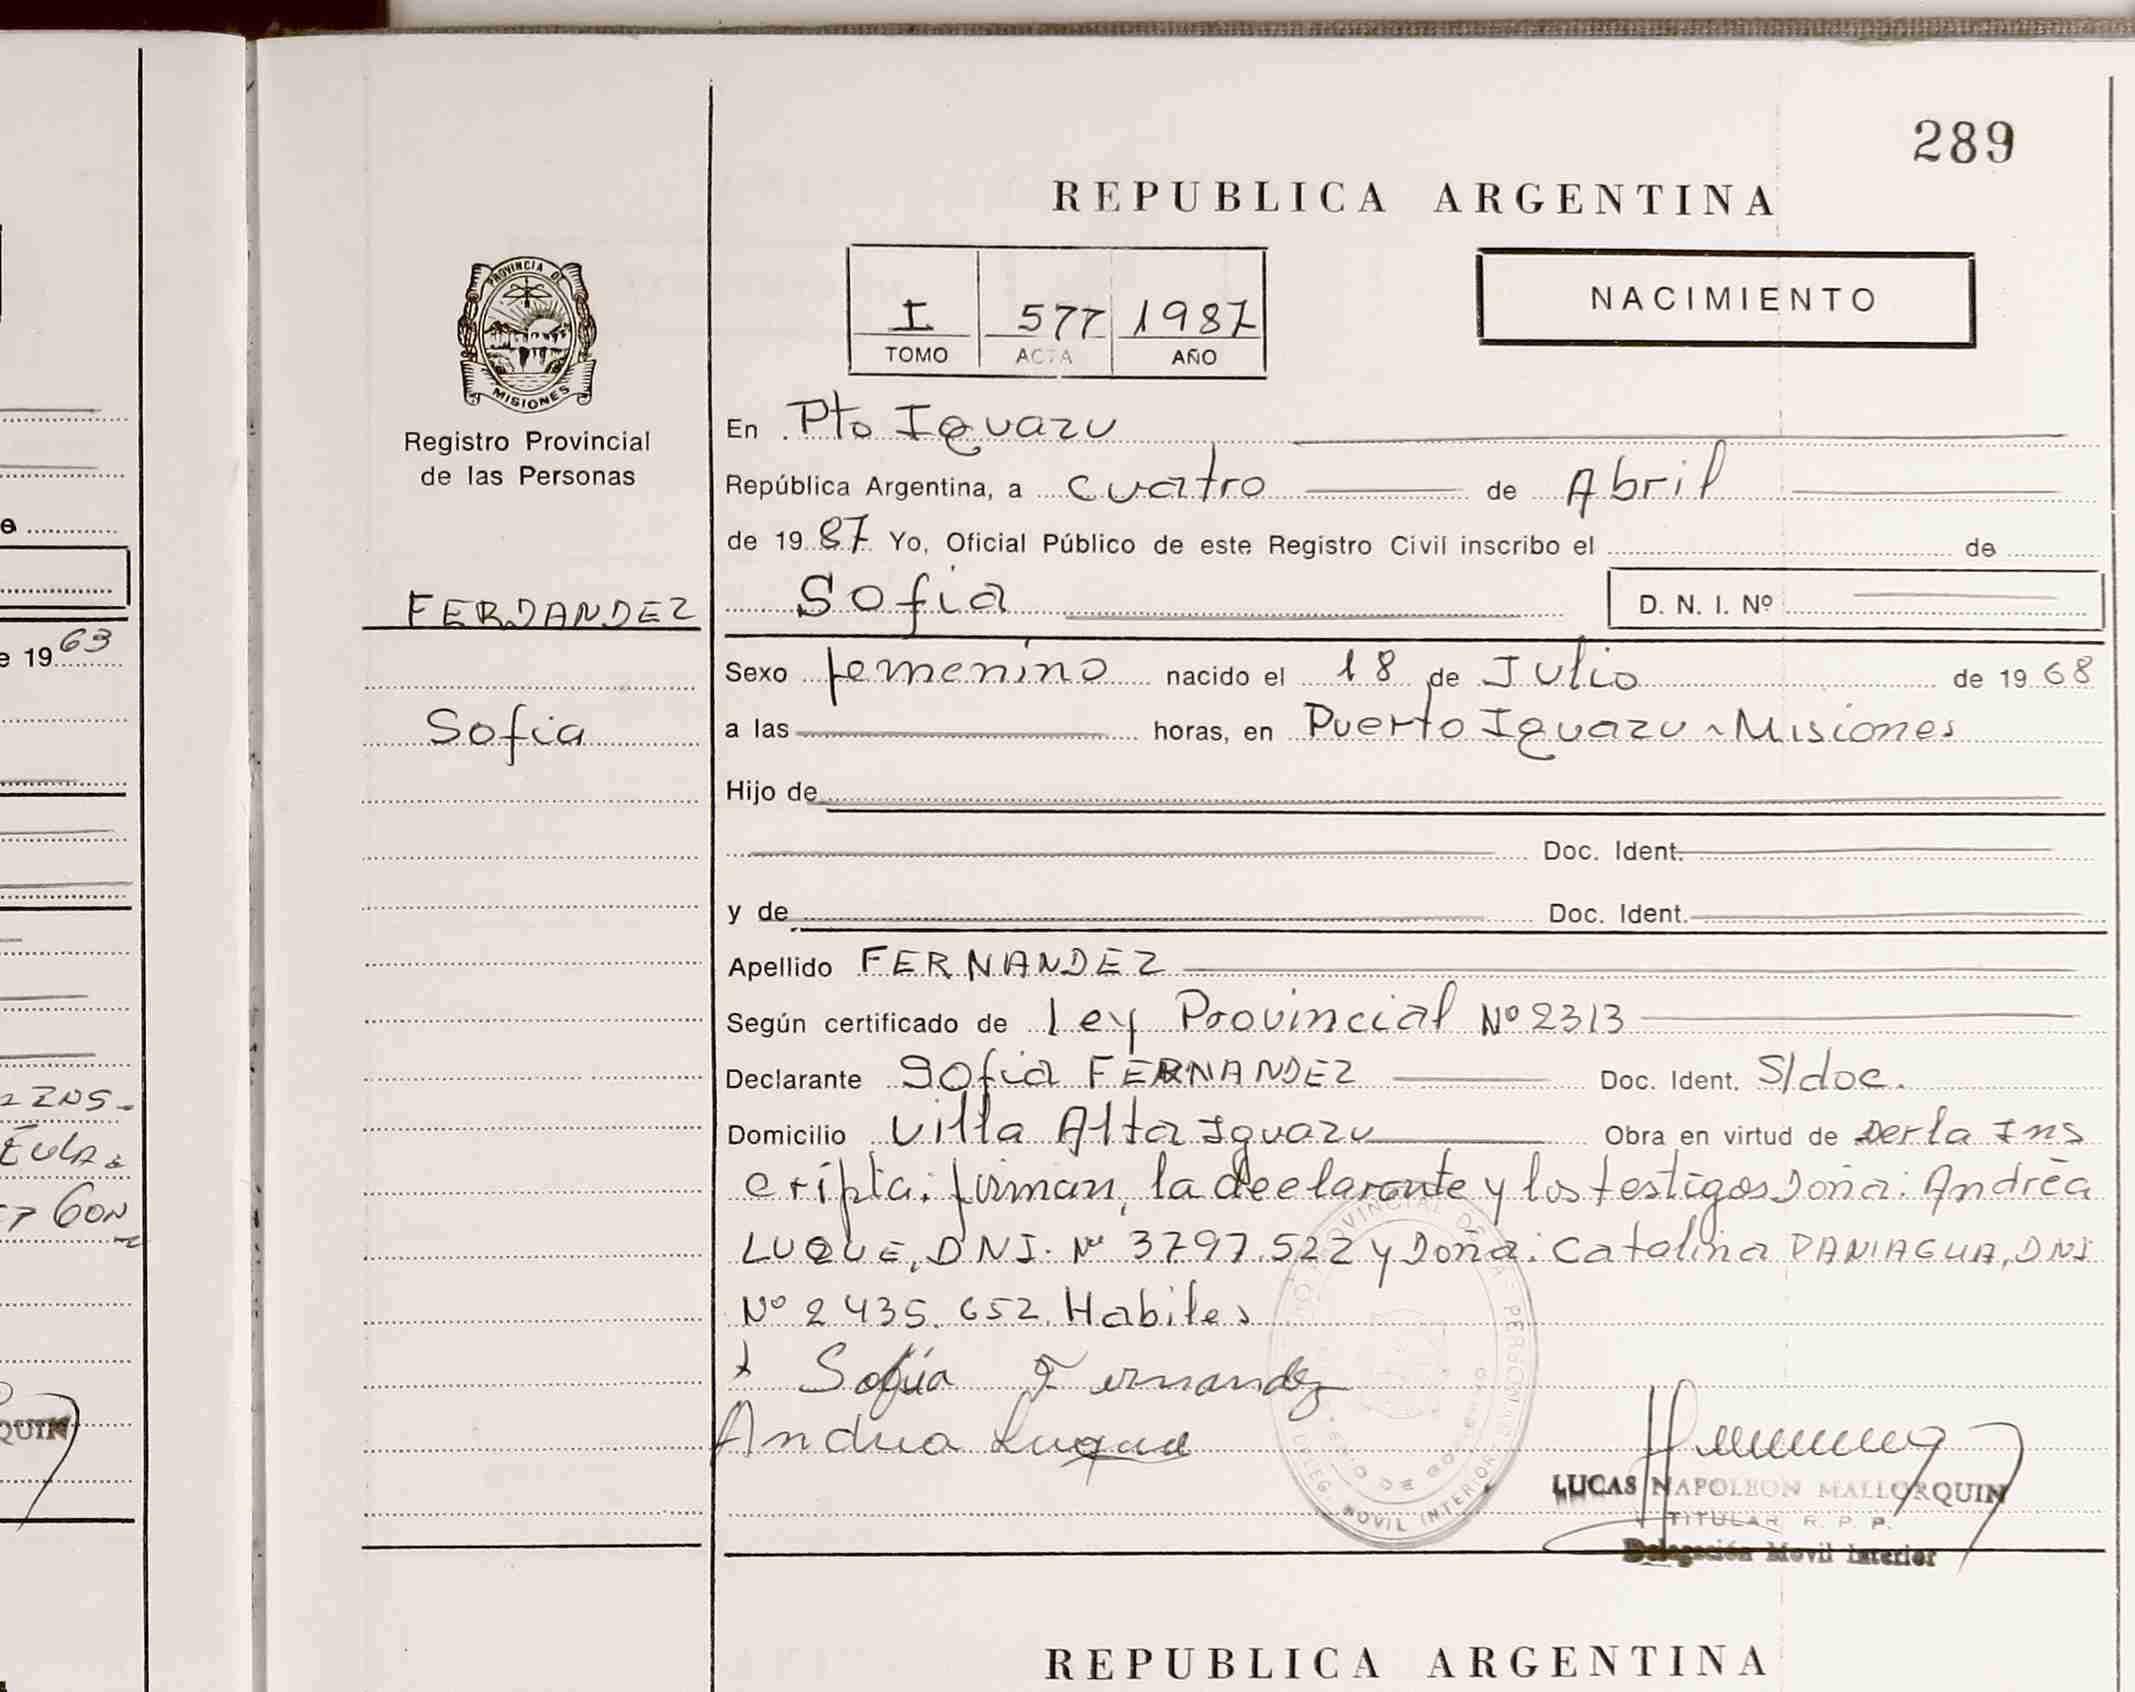 289
REPUBLICA ARGENTINA
I 577 1987
TOMO ACTA AÑO
NACIMIENTO
PROVINCIA DE
MISIONES
Registro Provincial
de las Personas
FERNANDEZ
Sofia
En Pto Iguazu
República Argentina, a cuatro de Abril
de 1987 Yo, Oficial Público de este Registro Civil inscribo el de
Sofia D. N. I. Nº
Sexo femenino nacido el 18 de Julio de 1968
a las horas, en Puerto Iguazu - Misiones
Hijo de
Doc. Ident.
y de Doc. Ident.
Apellido FERNANDEZ
Según certificado de Ley Provincial Nº 2313
Declarante Sofia FERNANDEZ Doc. Ident. S/doc.
Domicilio Villa Alta Iguazu Obra en virtud de Ser la Ins
cripta: firman, la declarante y los testigos Doña: Andréa
LUQUE, DNI. Nº 3797.522 y Doña: Catalina PANIAGUA, DNI
Nº 2435.652. Habiles
x Sofia Fernandez
Andrea Luque
LUCAS NAPOLEON MALLORQUIN
TITULAR R. P. P.
Delegación Movil Interior
REPUBLICA ARGENTINA
e
e 1963
INS-
EULA
GON
QUIN